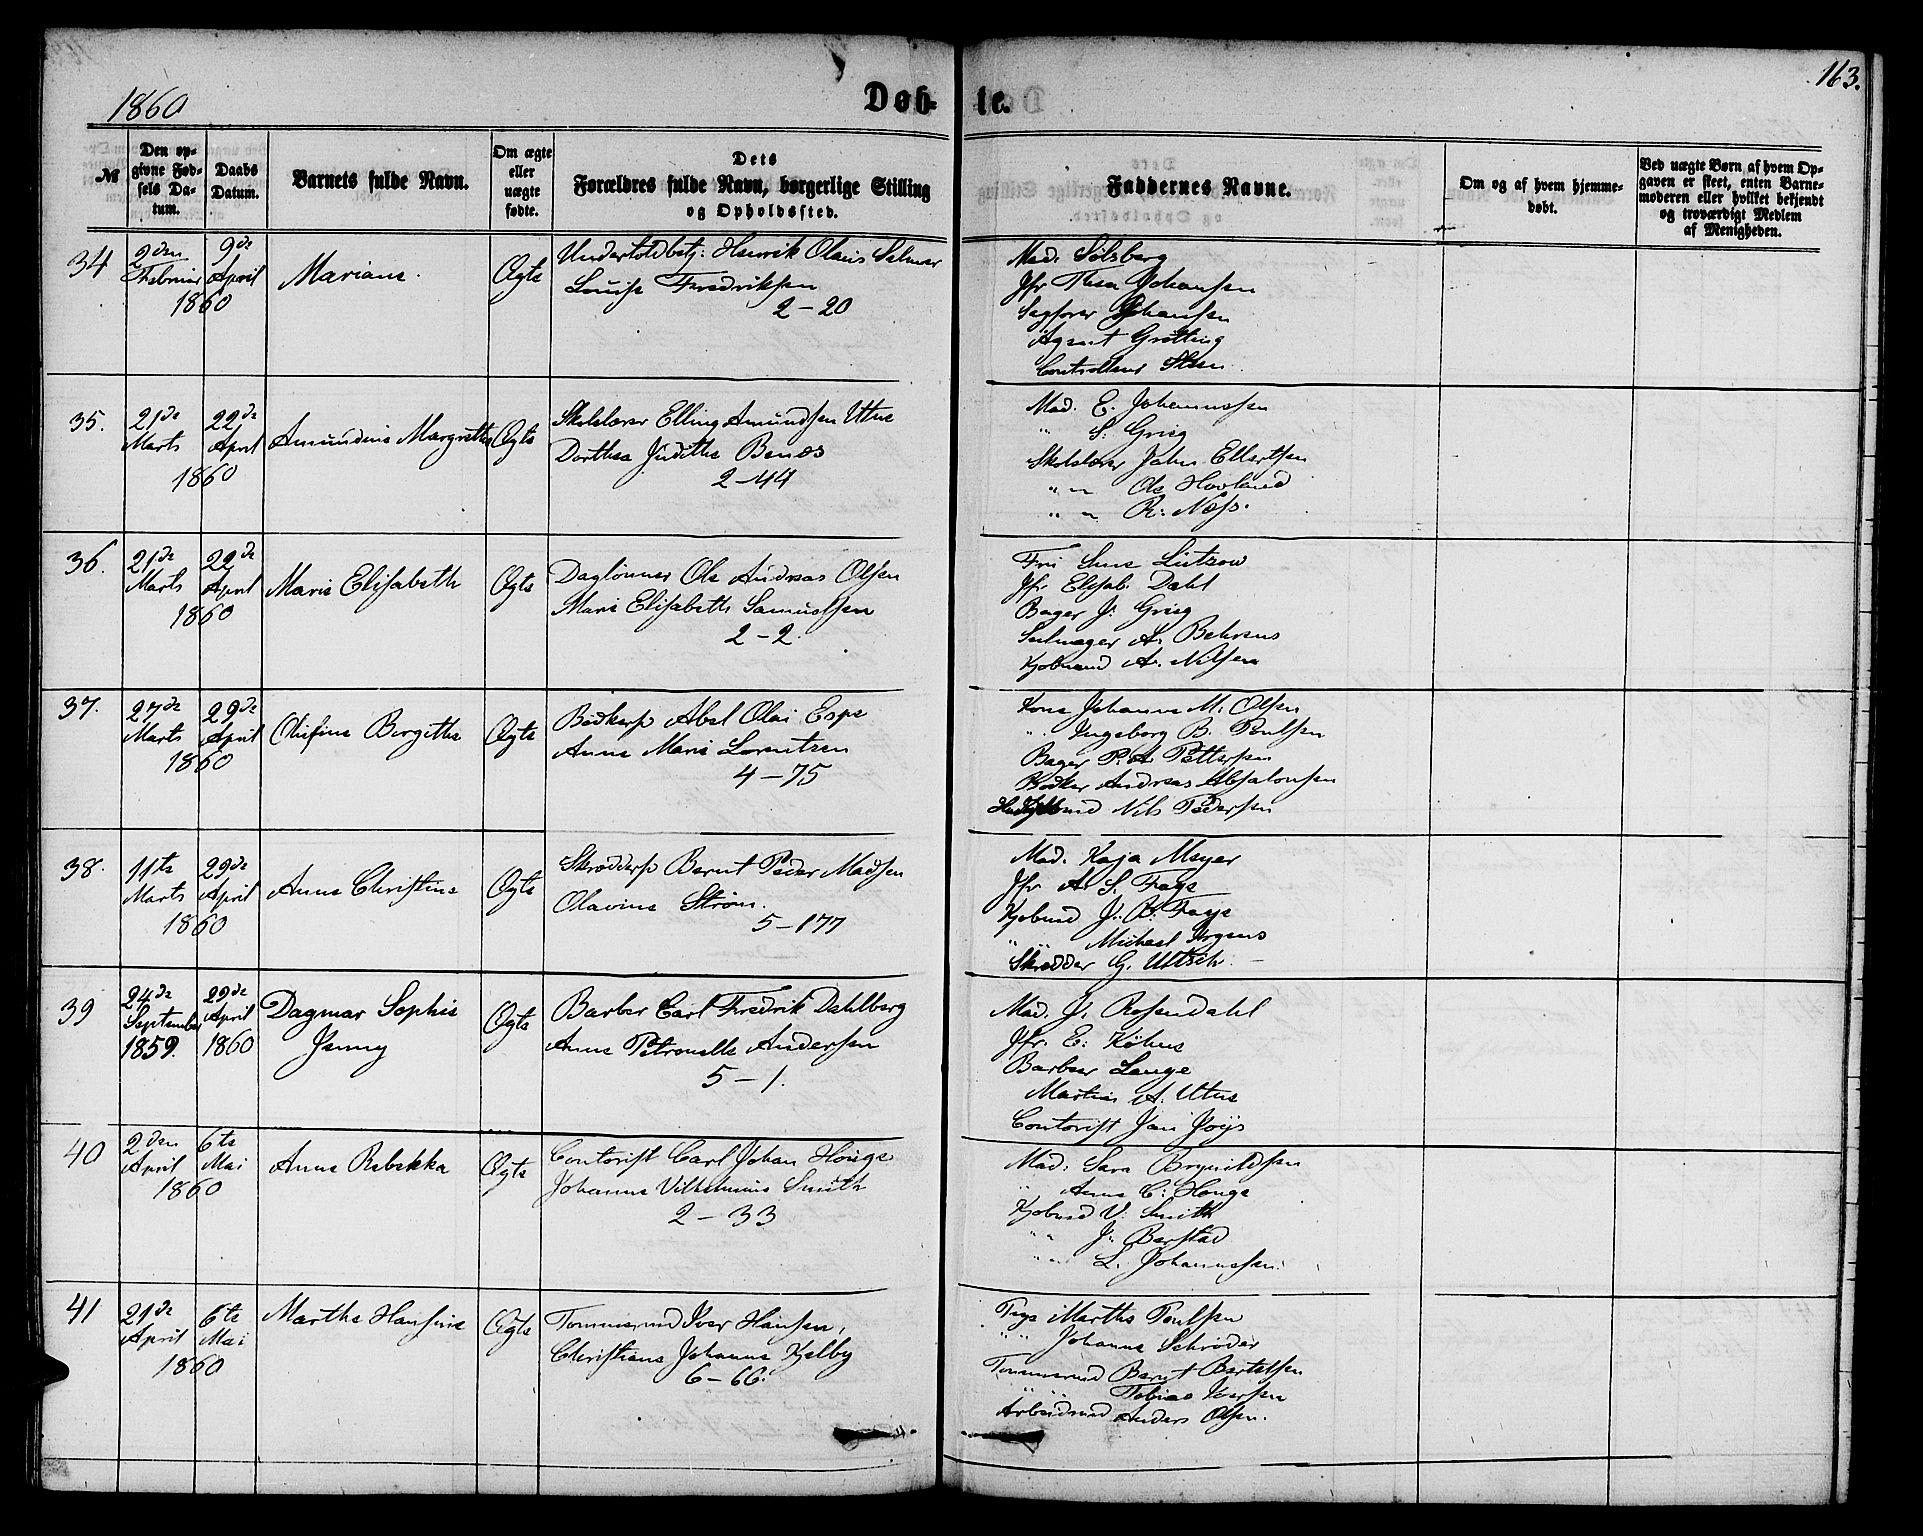 163.
1860
Døb-
te.
№
Den op-
givne Fød-
sels Da-
tum.
Daabs
Datum.
Barnets fulde Navn.
Om ægte
eller
uægte
fødte.
Dets
Forældres fulde Navn, borgerlige Stilling
og Opholdssted.
Faddernes Navne.
Om og af hvem hjemme-
døbt.
Ved uægte Børn af hvem Op-
gaven er skeet, enten Barne-
moderen eller hvilket bekjendt
og troværdigt Medlem
af Menigheden.
34
2den
Februar
9de
April
1860
Mariane.
Ægte
Undertoldbetj: Henrik Olaus Selmer
Louise Fredriksen
2-20
Mad: Solsberg
Jfr Thea Johansen
Sagfører Johansen
Agent Grøtting
Controlleur Steen
35.
21de
Marts
22de
April
1860
Amundine Margrethe
Ægte
Skolelærer Elling Amundsen Utne
Dorthea Judithe Benes
2-44
Mad: E. Johannessen
" S: Grieg
Skolelærer John Ellertsen
" " Ole Hovland
" " R: Næss.
36.
21de
Marts
22de
April
1860
Marie Elisabeth
Ægte
Daglønner Ole Andreas Olsen
Marie Elisabeth Samuelsen
2-2.
Fru Lützow
Jfr Elisab. Dahl
Bager J: Grieg
Seilmager A. Behrens
Kjøbmand A. Nilsen
37.
27de
Marts
29de
April
1860
Olufine Birgitte
Ægte
Bødkersv Abel Olai Espe
Anne Marie Lorentzen
4-75
Kone Johanne M: Olsen
" Ingeborg B. Poulsen
Bager P. A. Pettersen
Bødker Andreas Absalonsen
Nils Pedersen
38.
11te
Marts
29de
April
1860
Anne Christine
Ægte
Skrædersv Bernt Peder Madsen
Olavine Strøm.
5-177
Mad. Kaja Meyer
Jfr A. S. Faye
Kjøbmd J. B. Faye
" " Michael Krogens
Skrædder G. Ultsch.
39
24de
September
1859.
29de
April
1860
Dagmar Sophie
Jenny
Ægte
Barber Carl Fredrik Dahlberg
Anne Petronelle Andersen
5-1.
Mad. J. Rosendahl
Jfr. E: Køhne
Barbeer Lange
Martin A. Utne
Contorist Jan Joys
40
2den
April
6te
Mai
1860
Anne Rebekka
Ægte
Contorist Carl Johan Houge
Johanne Vilhelmine Smith
2-33
Mad: Sara Brynildsen
" Anne C: Houge
Kjøbmd V: Smith
" " J: Berstad
" " L. Johannessen.
41
21de
April
6te
Mai
1860
Marthe Hansine
Ægte
Tømmermd Iver Hansen,
Christiane Johanne Kjelby
6-66.
Pige Marthe Poulsen
" " Johanne Schrøder
Tømmermd Bernt Bertelsen
" " Tobias Iversen
Arbeidsmd Anders Olsen.